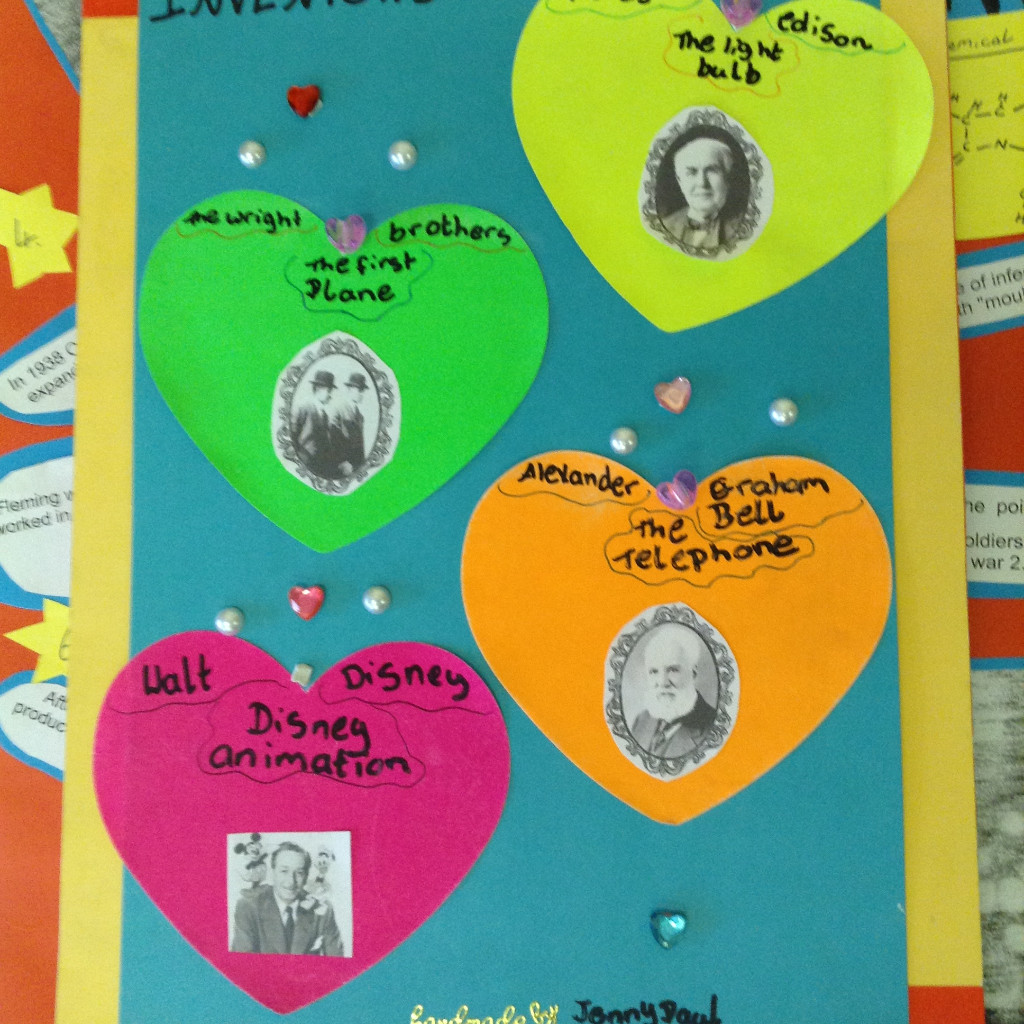 edison
The light
bulb
The wright brothers
The first
Plane
Alexander Graham
Bell
The
Telephone
Walt Disney
Disney
animation
handmade by Jonny Paul
4.
In 1938
expand
Fleming w
worked in
6
Aft
produc
emical
e of infe
th "moul
he poi
oldiers
war 2.